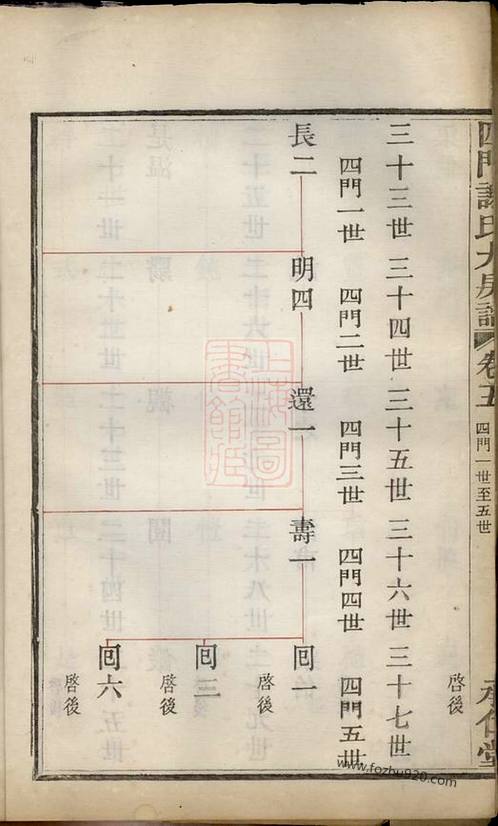 四門謝氏大房譜 卷五 四門一世至五世 承仁堂
啓後
三十三世 三十四世 三十五世 三十六世 三十七世
四門一世 四門二世 四門三世 四門四世 四門五世
長二 明四 還一 壽一 回一
啓後
回三
啓後
回六
啓後
上海圖書館藏
www.fozhu920.com